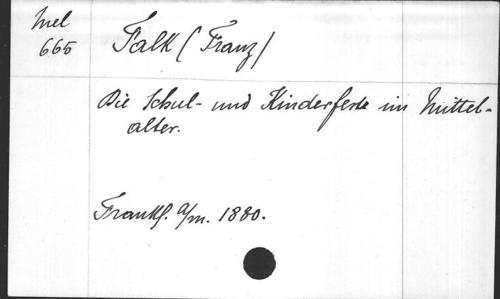 Mel
665
Falk (Franz)
Die Schul- und Kinderfeste im Mittel-
alter.
Frankf. a/m. 1880.